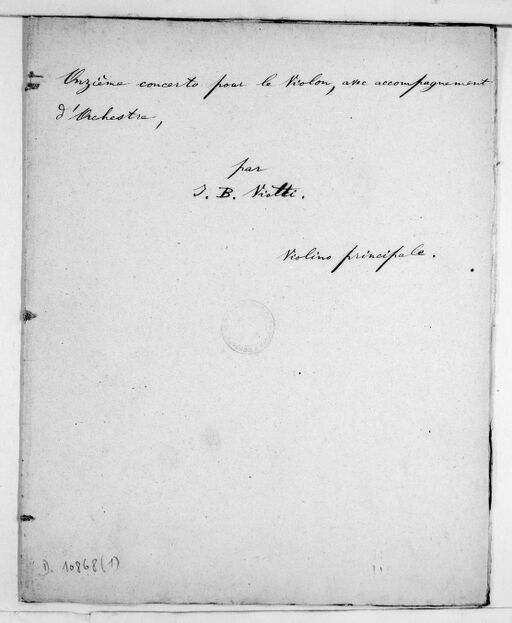 Onzième concerto pour le Violon, avec accompagnement
d'Orchestre,
par
J. B. Viotti.
Violino principale.
D. 10868(1)